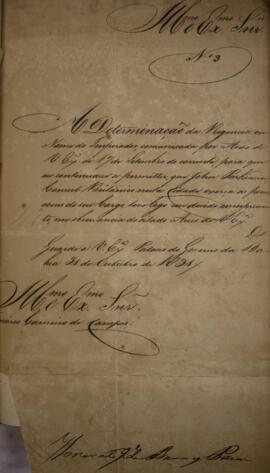 Illmo e Exmo Snr
No 3
A Determinação da Regencia em
Nome do Imperador, communicada por Aviso de
V. Exa. de 17 de Setembro do corrente, para que
eu continuasse a permittir, que John Parkinson
Consul Britanico nesta Cidade exerça as func
coens do seu Cargo, teve logo seu devido cumprimen
to, em observancia do citado Aviso de V. Exa.
Deos
Guarde a V. Exa. Palacio do Governo da Ba
hia 31 de Outubro de 1831
Illmo e Exmo Snr
Carneiro de Campos.
Honorato J. de Barros Paim